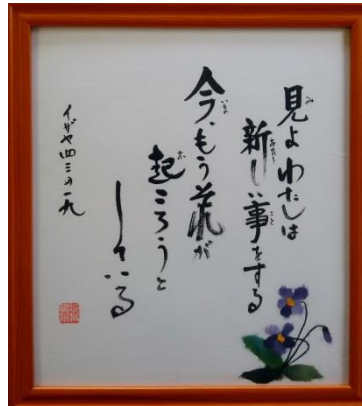 見よわたしは
新しい事をする
今、もうそれが
起ころうと
している
イザヤ四三の一九